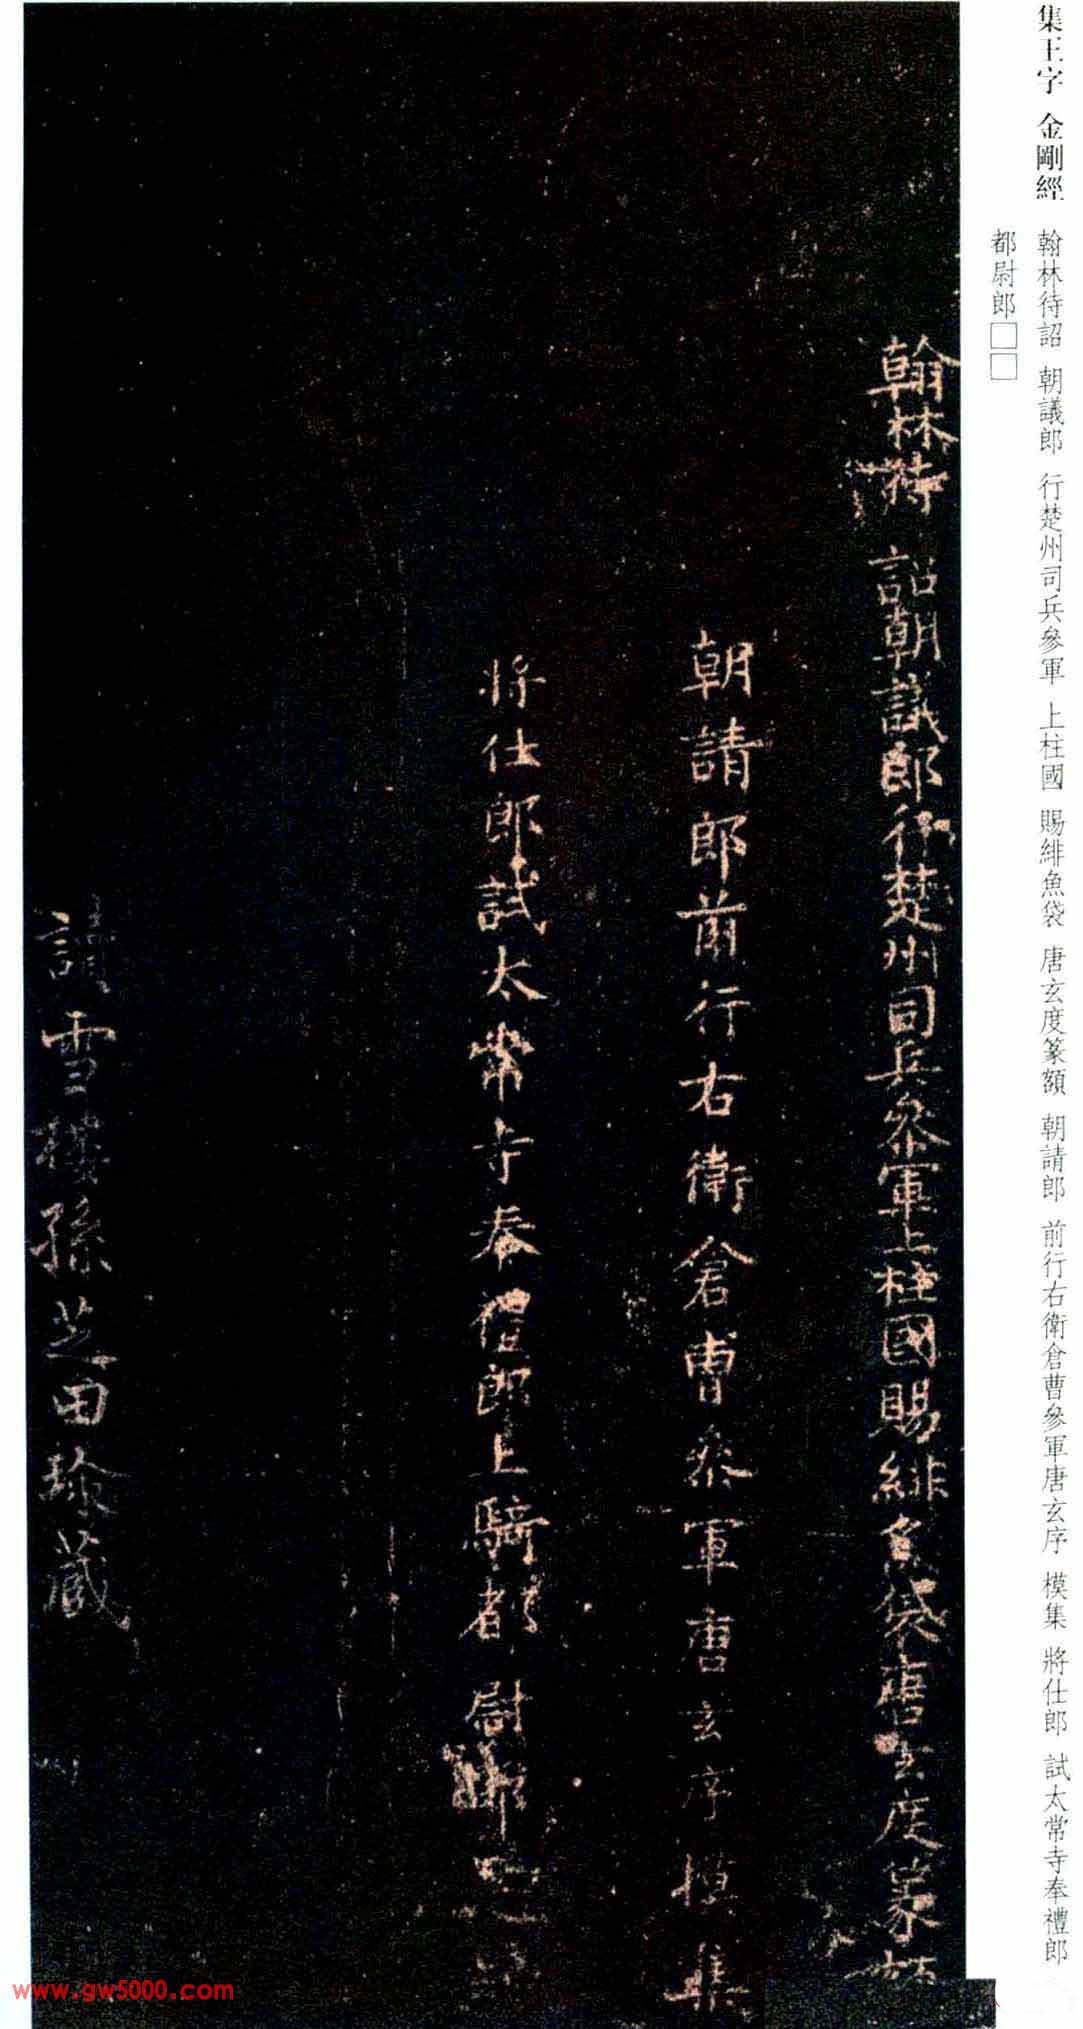 集王字 金剛經 翰林待詔 朝議郎 行楚州司兵參軍 上柱國 賜緋魚袋 唐玄度篆額 朝請郎 前行右衛倉曹參軍唐玄序 模集 將仕郎 試太常寺奉禮郎
都尉郎□□
翰林待 詔朝議郎行楚州司兵參軍上柱國賜緋魚袋唐玄度篆額
朝請郎前行右衛倉曹參軍唐玄序模集
將仕郎試太常寺奉禮郎上騎都尉
雪樓孫芝田珍藏
www.gw5000.com